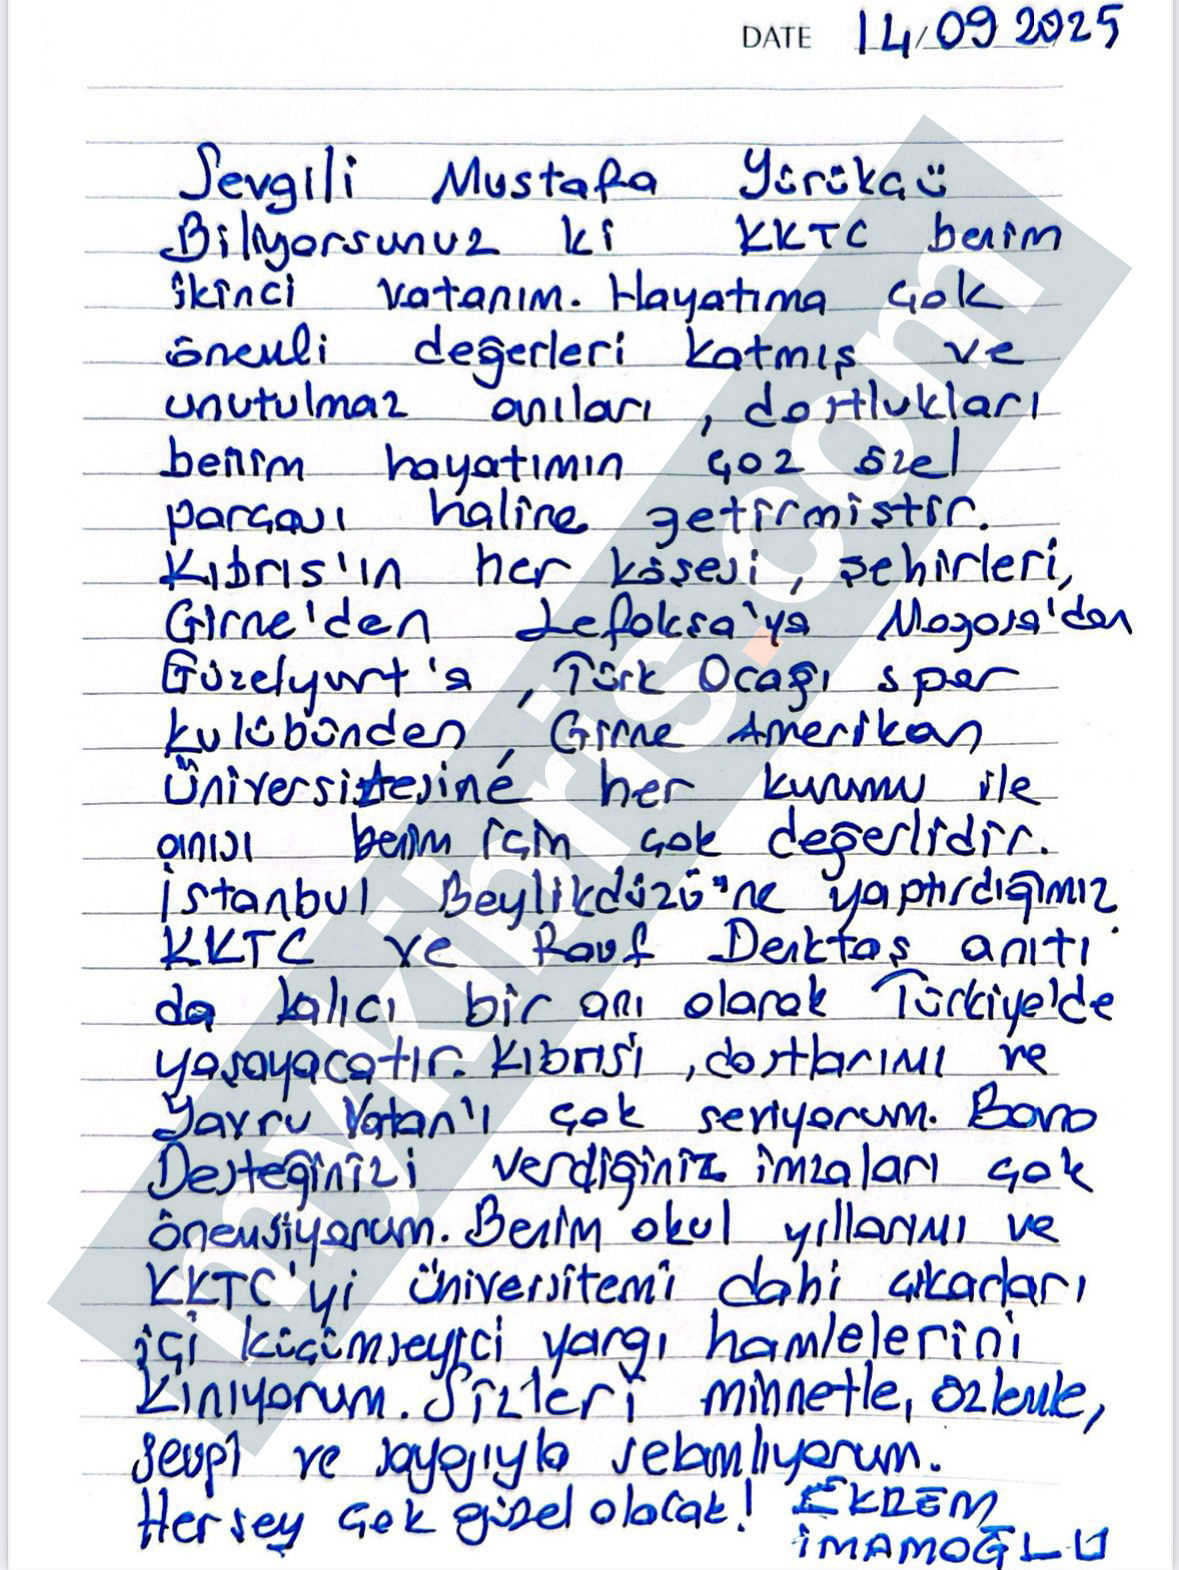 DATE 14/09 2025
Sevgili Mustafa Yürükçü
Biliyorsunuz ki KKTC benim
ikinci vatanım. Hayatıma çok
önemli değerleri katmış ve
unutulmaz anıları, dostlukları
benim hayatımın çoz özel
parçası haline getirmiştir.
Kıbrıs'ın her köşesi, şehirleri,
Girne'den Lefkoşa'ya Magosa'dan
Güzelyurt'a, Türk Ocağı spor
kulübünden, Girne Amerikan
Üniversitesine her kurumu ile
anısı benim için çok değerlidir.
İstanbul Beylikdüzü'ne yaptırdığımız
KKTC ve Rauf Denktaş anıtı
da kalıcı bir anı olarak Türkiye'de
yaşayacatır. Kıbrıs'ı, dostlarımı ve
Yavru Vatan'ı çok seviyorum. Bana
Desteğinizi verdiğiniz imzaları çok
önemsiyorum. Benim okul yıllarımı ve
KKTC'yi üniversitemi dahi çıkarları
içi küçümseyici yargı hamlelerini
Kınıyorum. Sizleri minnetle, özlemle,
sevgi ve saygıyla selamlıyorum.
Herşey çok güzel olacak! EKREM
İMAMOĞLU
mykibris.com